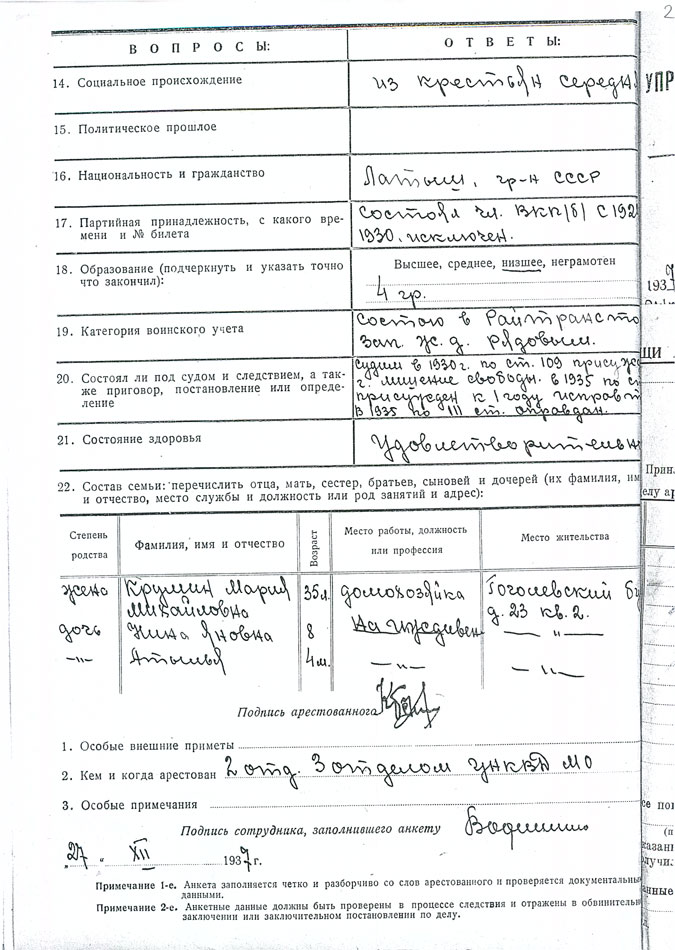 2
ВОПРОСЫ: ОТВЕТЫ:
14. Социальное происхождение из крестьян середн
УПР
15. Политическое прошлое
16. Национальность и гражданство Латыш, гр-н СССР
17. Партийная принадлежность, с какого вре- Состоял чл. ВКП/б/ с 192
мени и № билета 1930. исключен.
18. Образование (подчеркнуть и указать точно Высшее, среднее, низшее, неграмотен
что закончил): 4 гр.
193
19. Категория воинского учета Состою в Райтрансто
Зап. ж. д. Рядовым.
ЩИ
20. Состоял ли под судом и следствием, а так- Судим в 1930 г. по ст. 109 присуж
же приговор, постановление или опреде- г. лишение свободы. в 1935 по с
ление присужден к 1 году исправ
В 1935 по 111 ст. оправдан.
21. Состояние здоровья Удовлетворительн
22. Состав семьи: перечислить отца, мать, сестер, братьев, сыновей и дочерей (их фамилия, им
и отчество, место службы и должность или род занятий и адрес):
Прин
елу ар
Степень родства
Фамилия, имя и отчество
Возраст
Место работы, должность или профессия
Место жительства
жена Крумин Мария 35 л. домохозяйка Гоголевский б
Михайловна д. 23 кв. 2.
дочь Нина Яновна 8 На иждивен — " —
—"— 4 м. —"— —"—
Подпись арестованного
1. Особые внешние приметы
2. Кем и когда арестован 2 отд. 3 отделом УНКВД МО
3. Особые примечания
Подпись сотрудника, заполнившего анкету
27 " XII 1937 г.
Примечание 1-е. Анкета заполняется четко и разборчиво со слов арестованного и проверяется документальны
данными.
Примечание 2-е. Анкетные данные должны быть проверены в процессе следствия и отражены в обвинительн
заключении или заключительном постановлении по делу.